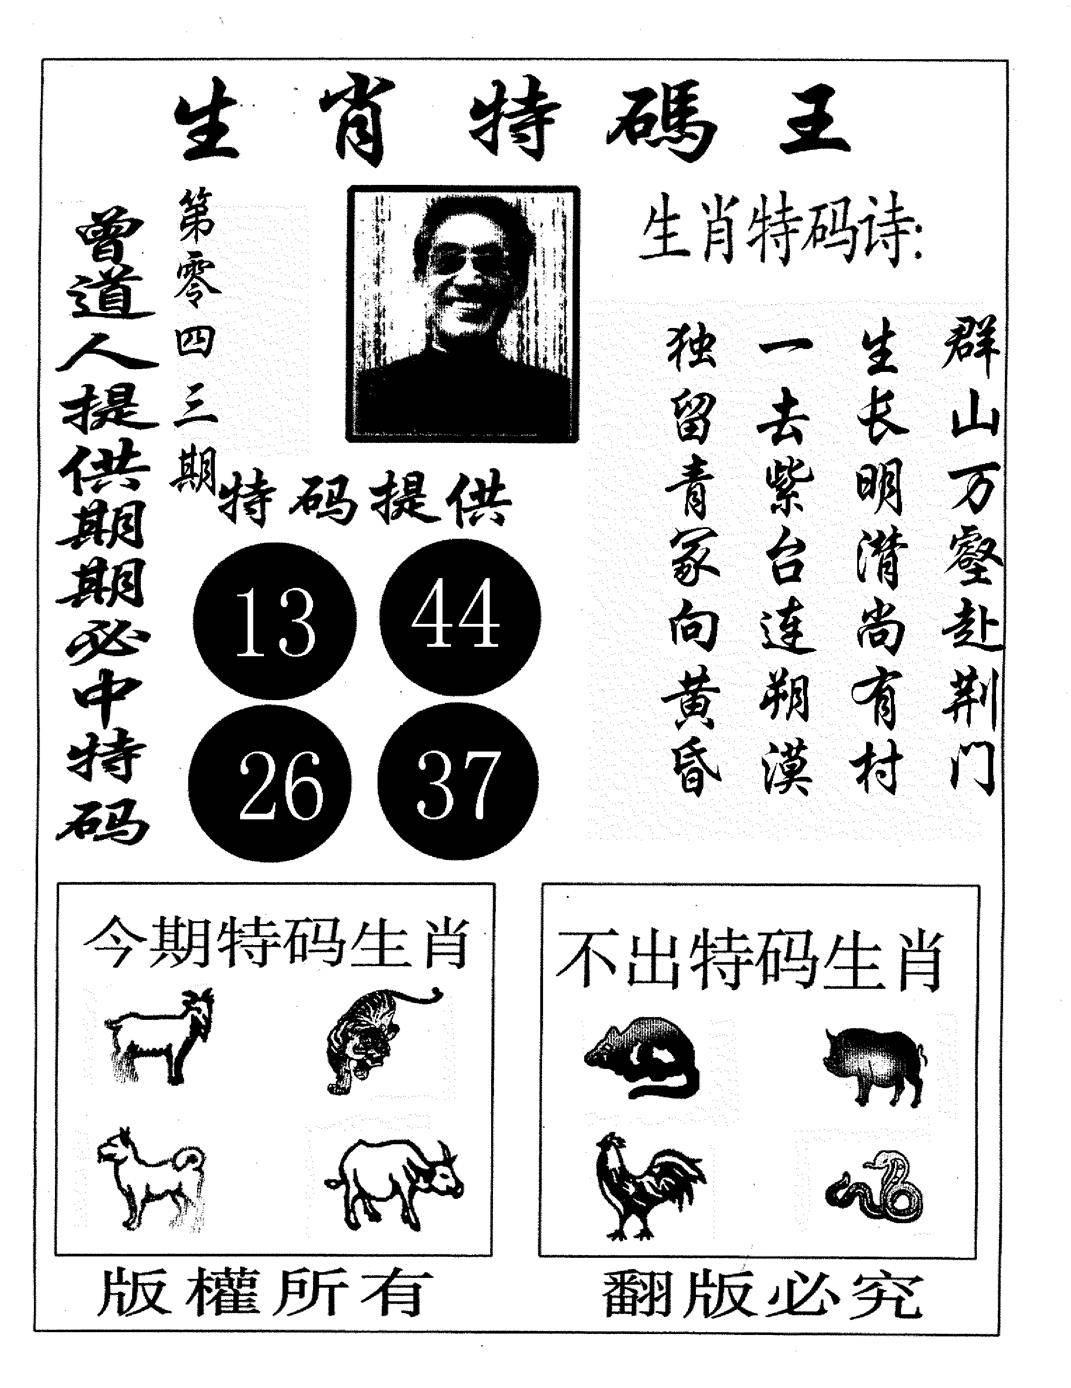 生肖特碼王
曾道人提供期期必中特码
第零四三期
生肖特码诗:
群山万壑赴荆门
生长明潜尚有村
一去紫台连朔漠
独留青冢向黄昏
特码提供
13 44
26 37
今期特码生肖
不出特码生肖
版權所有
翻版必究